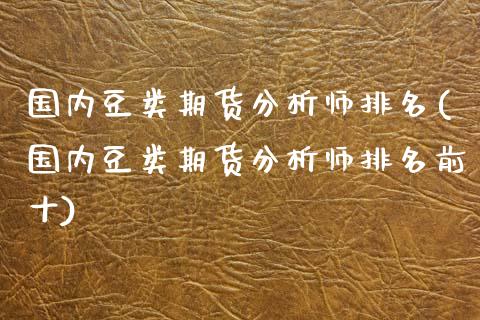 国内豆类期货分析师排名(
国内豆类期货分析师排名前
十)